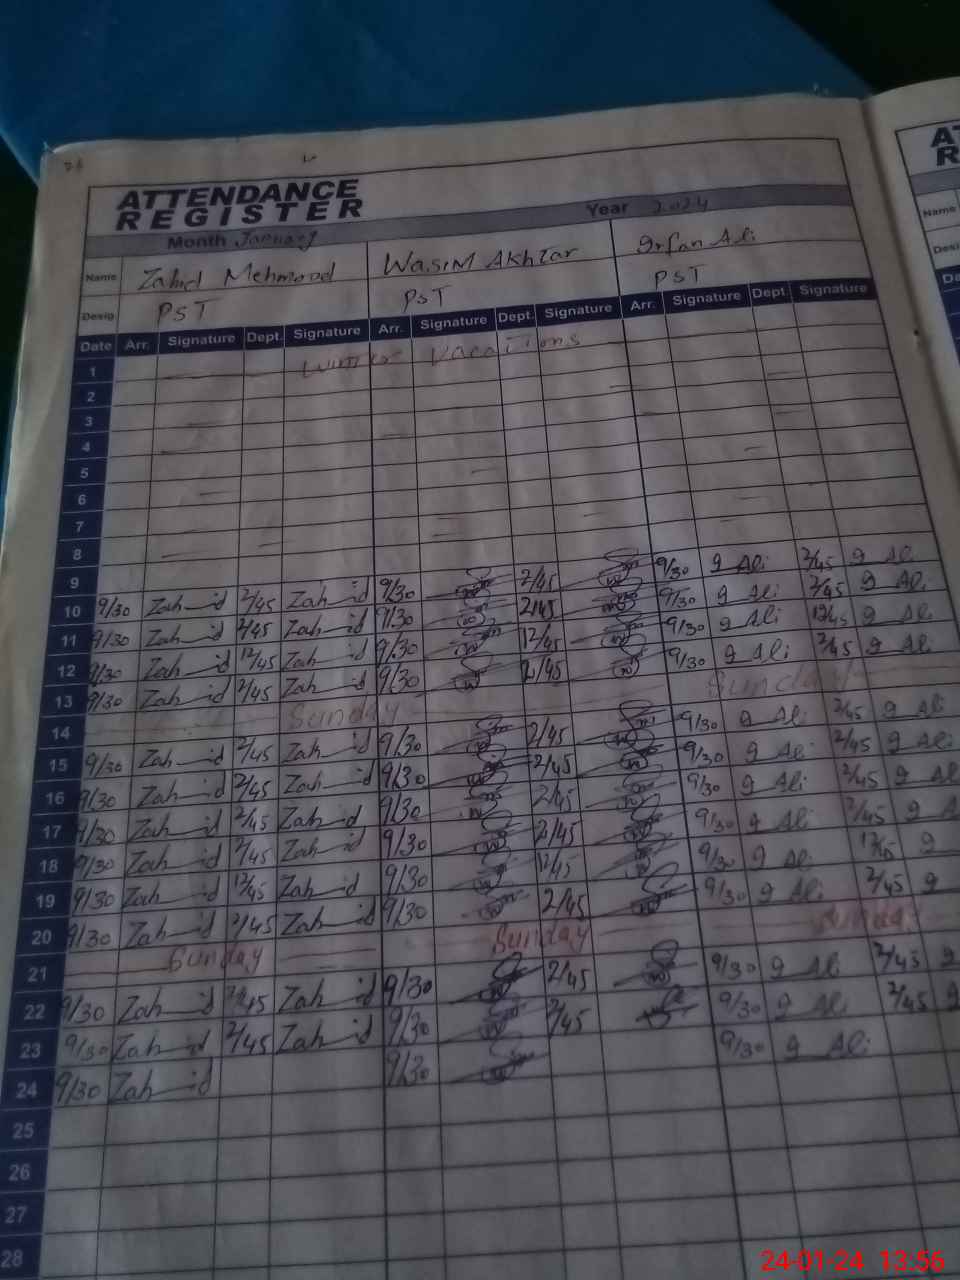 ATTENDANCE
REGISTER
Month January Year 2024
Name Zahid Mehmood Wasim Akhtar Irfan Ali
Desig PST PST PST
Date Arr. Signature Dept. Signature Arr. Signature Dept. Signature Arr. Signature Dept. Signature
1 Winter Vacations
2
3
4
5
6
7
8
9
10 9/30 Zahid 2/45 Zahid 9/30 2/45 9/30 I Ali 2/45 I Ali
11 9/30 Zahid 2/45 Zahid 9/30 2/45 9/30 I Ali 2/45 I Ali
12 9/30 Zahid 12/45 Zahid 9/30 12/45 9/30 I Ali 12/45 I Ali
13 9/30 Zahid 2/45 Zahid 9/30 2/45 9/30 I Ali 2/45 I Ali
14 Sunday Sunday
15 9/30 Zahid 2/45 Zahid 9/30 2/45 9/30 I Ali 2/45 I Ali
16 9/30 Zahid 2/45 Zahid 9/30 2/45 9/30 I Ali 2/45 I Ali
17 9/30 Zahid 2/45 Zahid 9/30 2/45 9/30 I Ali 2/45 I Al
18 9/30 Zahid 2/45 Zahid 9/30 2/45 9/30 I Ali 2/45 I A
19 9/30 Zahid 12/45 Zahid 9/30 12/45 9/30 I Ali 12/45 I
20 9/30 Zahid 2/45 Zahid 9/30 2/45 9/30 I Ali 2/45 I
21 Sunday Sunday Sunday
22 9/30 Zahid 2/45 Zahid 9/30 2/45 9/30 I Ali 2/45 I
23 9/30 Zahid 2/45 Zahid 9/30 2/45 9/30 I Ali 2/45 I
24 9/30 Zahid 9/30 9/30 I Ali
25
26
27
28
Name
24-01-24 13:56